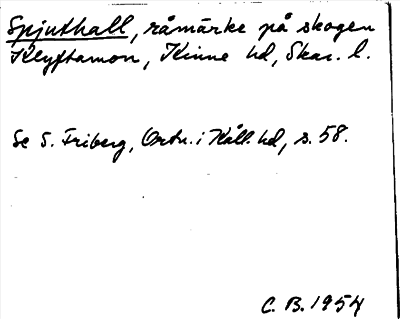 Spjuthall, råmärke på skogen
Klyftamon, Kinne hd, Skar. l.
Se S. Friberg, Ortn. i Kåll. hd, s. 58.
C. B. 1954